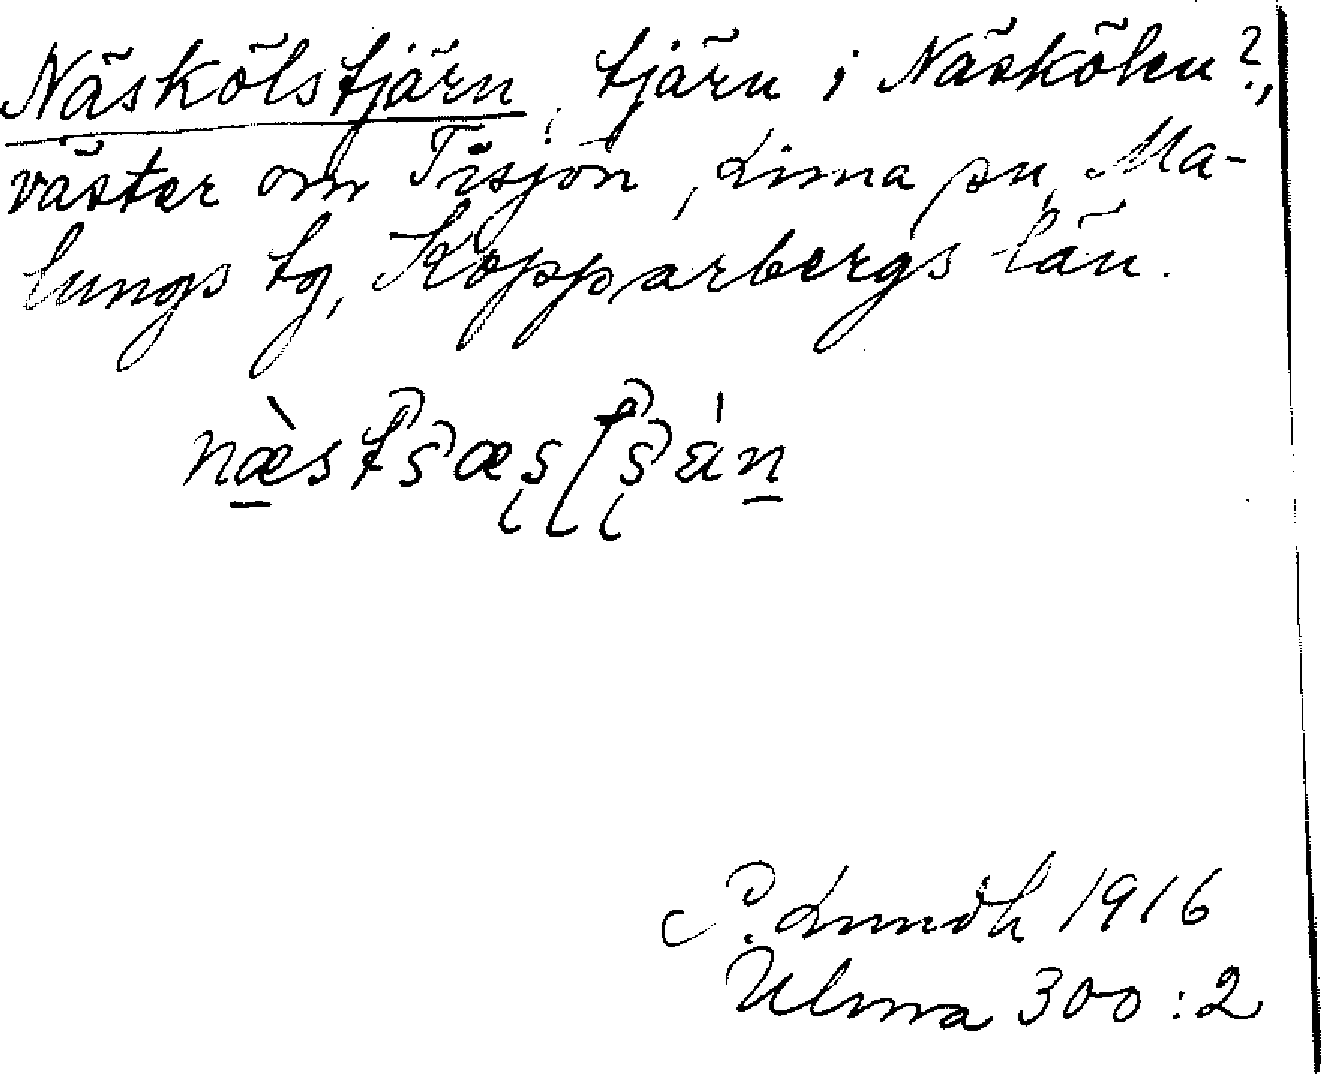 Näskölstjärn, tjärn i Näskölen?,
väster om Tisjön, Lima sn, Ma-
lungs tg, Kopparbergs län.
P. Lundh 1916
Ulma 300:2